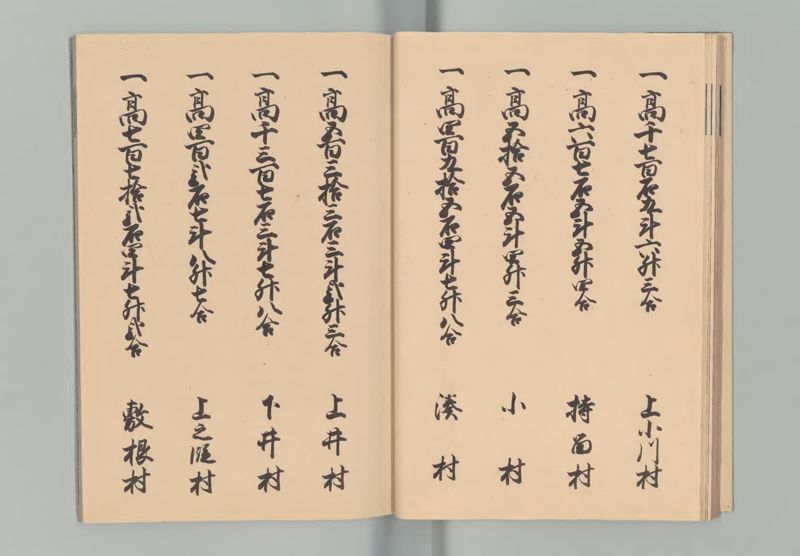 一高千七百石九斗六升三合 上小川村
一高六百七石五斗五升四合 持留村
一高五拾五石五斗四升三合 小村
一高四百九拾五石四斗七升八合 湊村
一高五百三拾三石三斗弐升三合 上井村
一高千三百七石三斗七升八合 下井村
一高四百弐石七斗八升七合 上之段村
一高七百七拾弐石四斗七升弐合 敷根村